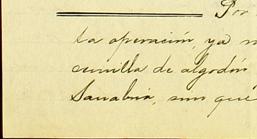 Por
la operación, ya
semilla de algodón
Sanabria, sino que